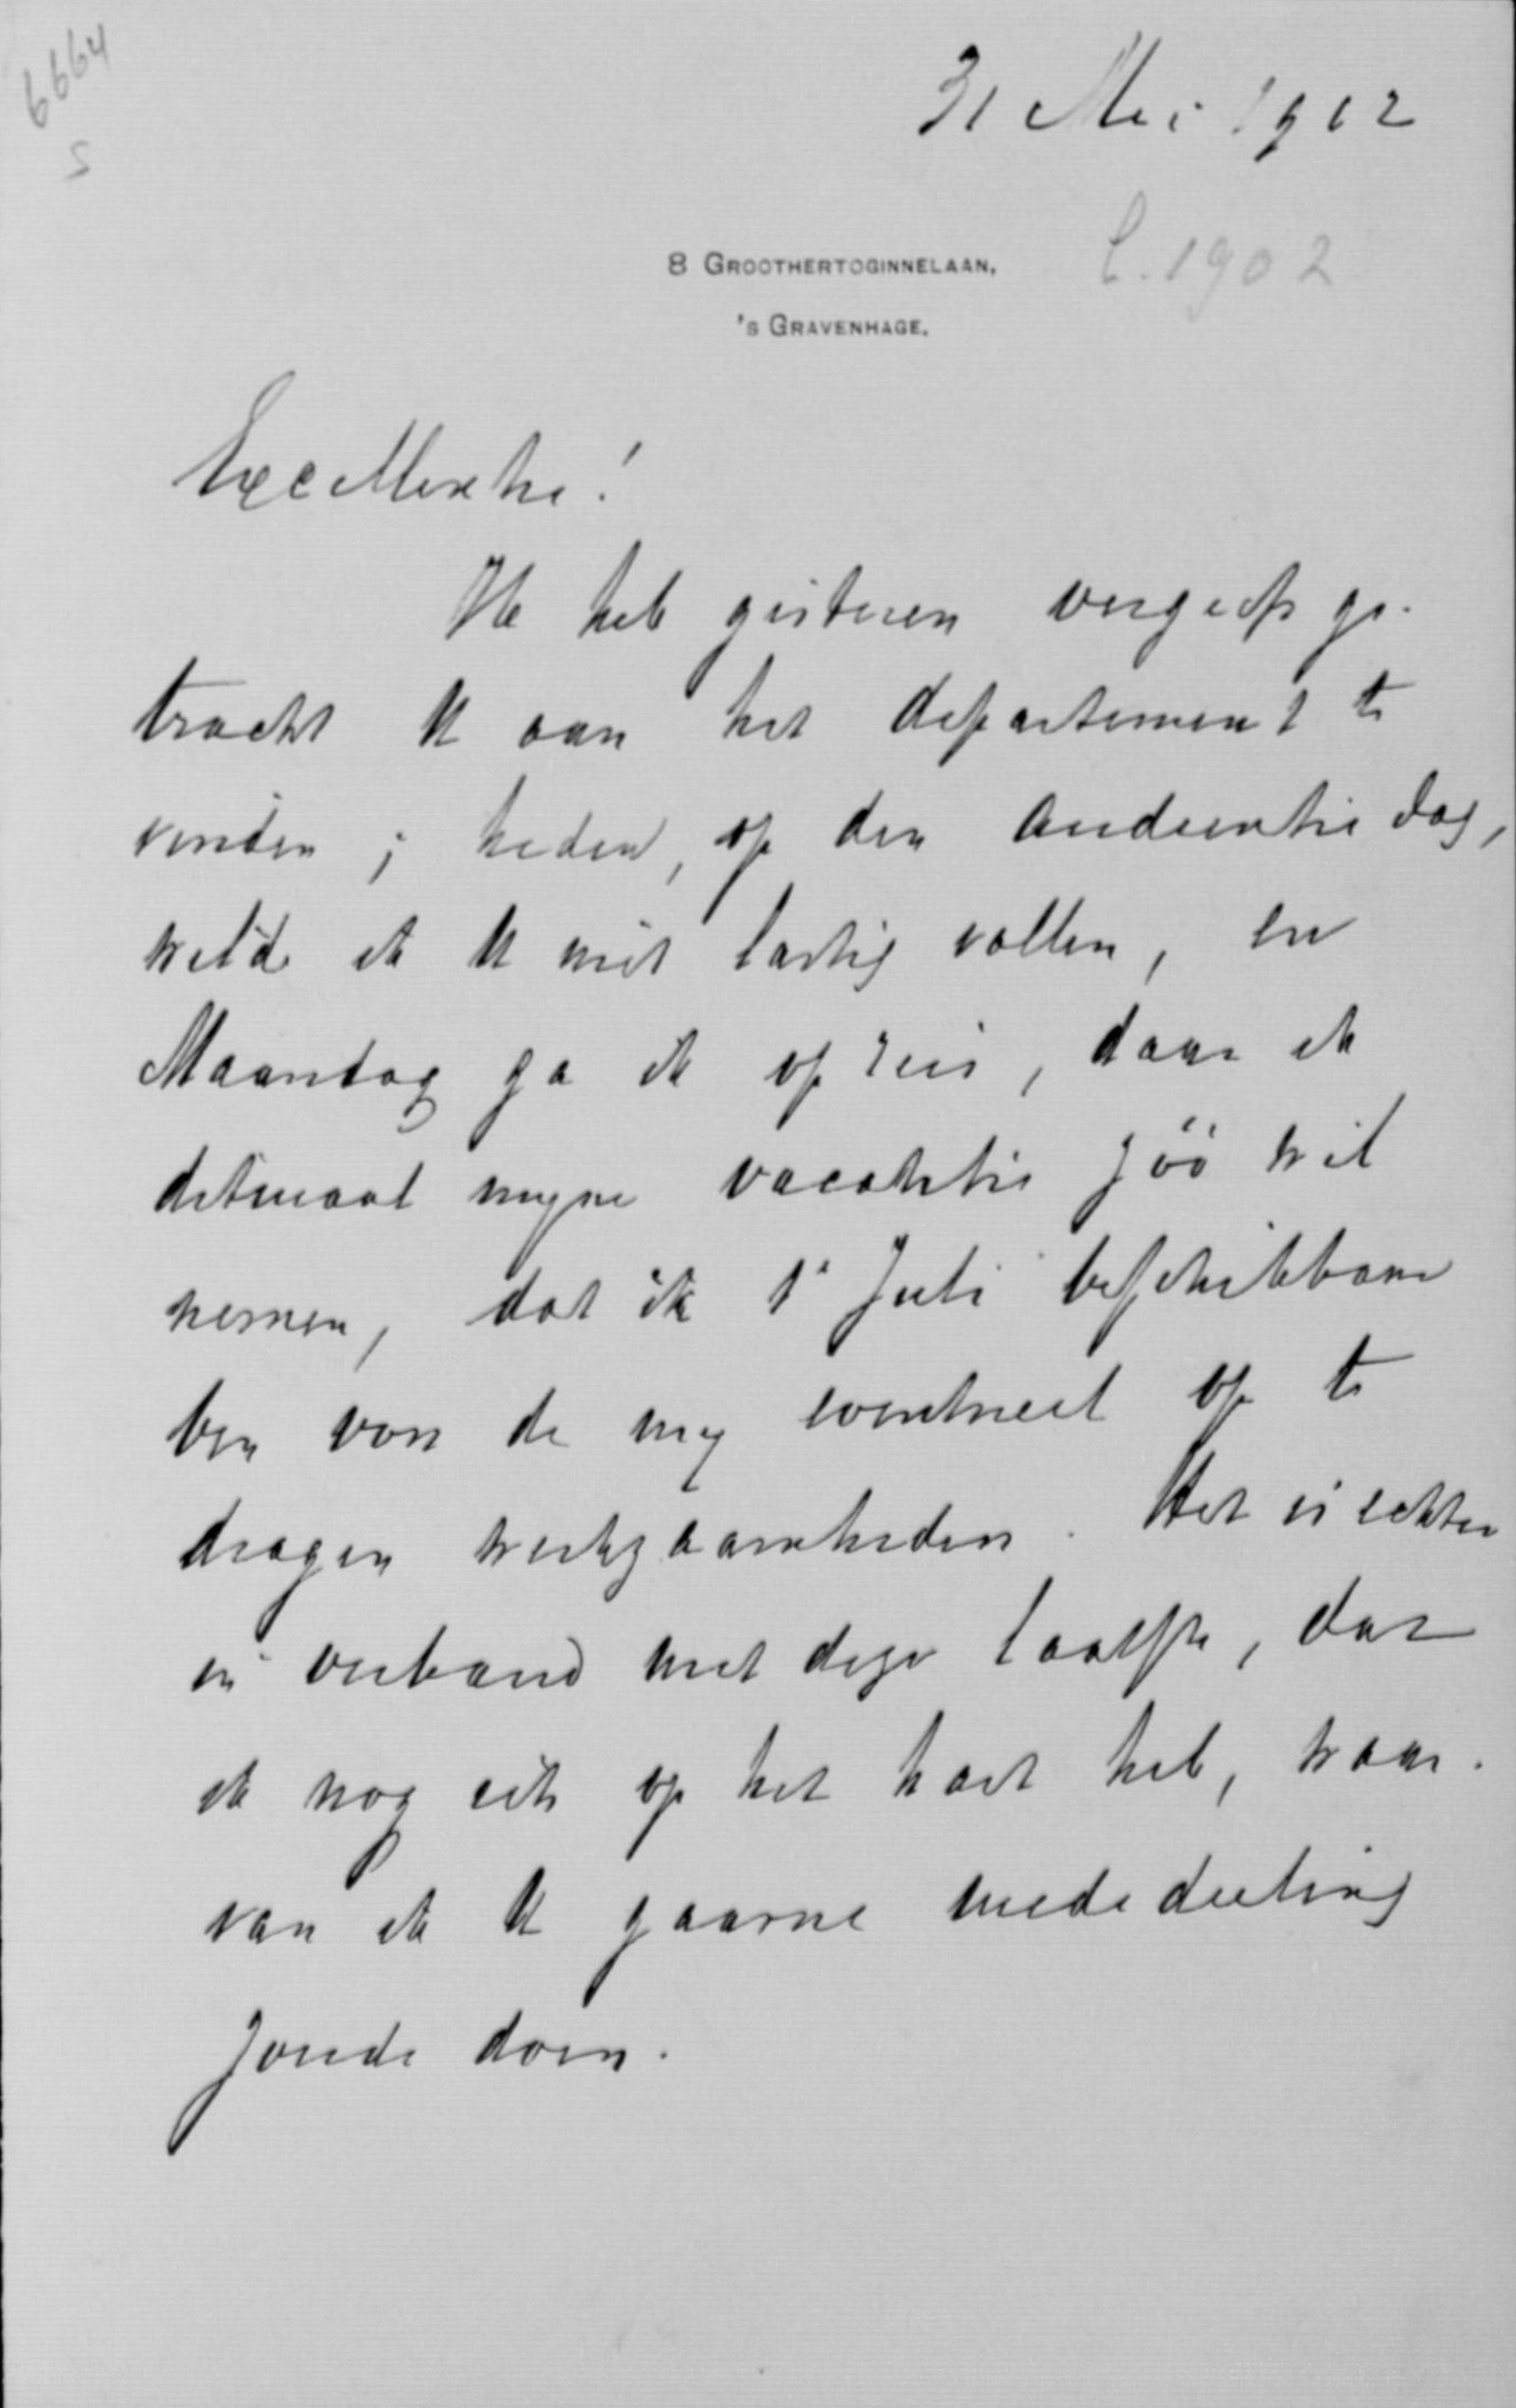 6664
S
31 Mei 1902
C. 1902
8 GROOTHERTOGINNELAAN,
'S GRAVENHAGE.
Excellentie!
Ik heb gisteren vergeefs ge-
tracht U aan het departement te
vinden; heden, op den audientie dag,
wilde ik U niet lastig vallen, en
Maandag ga ik op reis, daar ik
ditmaal mijne vacantie zóó wil
nemen, dat ik 1° Juli beschikbaar
ben voor de mij eventueel op te
dragen werkzaamheden. Het is echter
in verband met deze laatste, dat
ik nog iets op het hart heb, waar-
van ik U gaarne mededeeling
zoude doen.